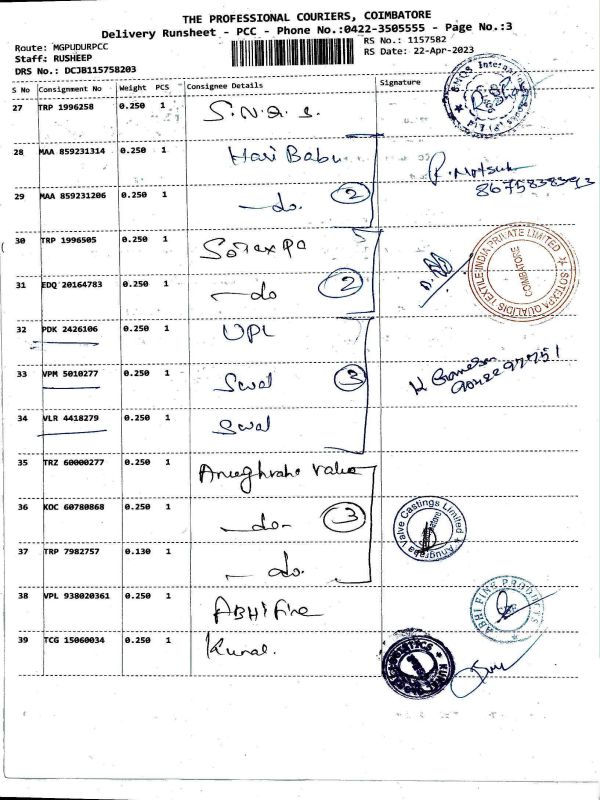 THE PROFESSIONAL COURIERS, COIMBATORE
Delivery Runsheet - PCC - Phone No.:0422-3505555 - Page No.:3
Route: MGPUDURPCC RS No.: 1157582
Staff: RUSHEEP RS Date: 22-Apr-2023
DRS No.: DCJB115758203
S No Consignment No Weight PCS Consignee Details Signature
27 TRP 1996258 0.250 1 S.N.Q.S.
28 MAA 859231314 0.250 1 Hari Babu
29 MAA 859231206 0.250 1 -do. 2
8675838393
30 TRP 1996505 0.250 1 Sotexpa
31 EDQ 20164783 0.250 1 -do 2
SOTEXPA QUALIDIS TEXTILE INDIA PRIVATE LIMITED
COIMBATORE
32 PDK 2426106 0.250 1 UPL
33 VPM 5010277 0.250 1 Swal 3
34 VLR 4418279 0.250 1 Swal
35 TRZ 60000277 0.250 1 Anughraha Valve
36 KOC 60780868 0.250 1 -do- 3
Anugraha Valve Castings Limited
37 TRP 7982757 0.130 1 -do.
38 VPL 938020361 0.250 1 ABHI Fine
ABHI FINE PRODUCTS
39 TCG 15060034 0.250 1 Kunal.